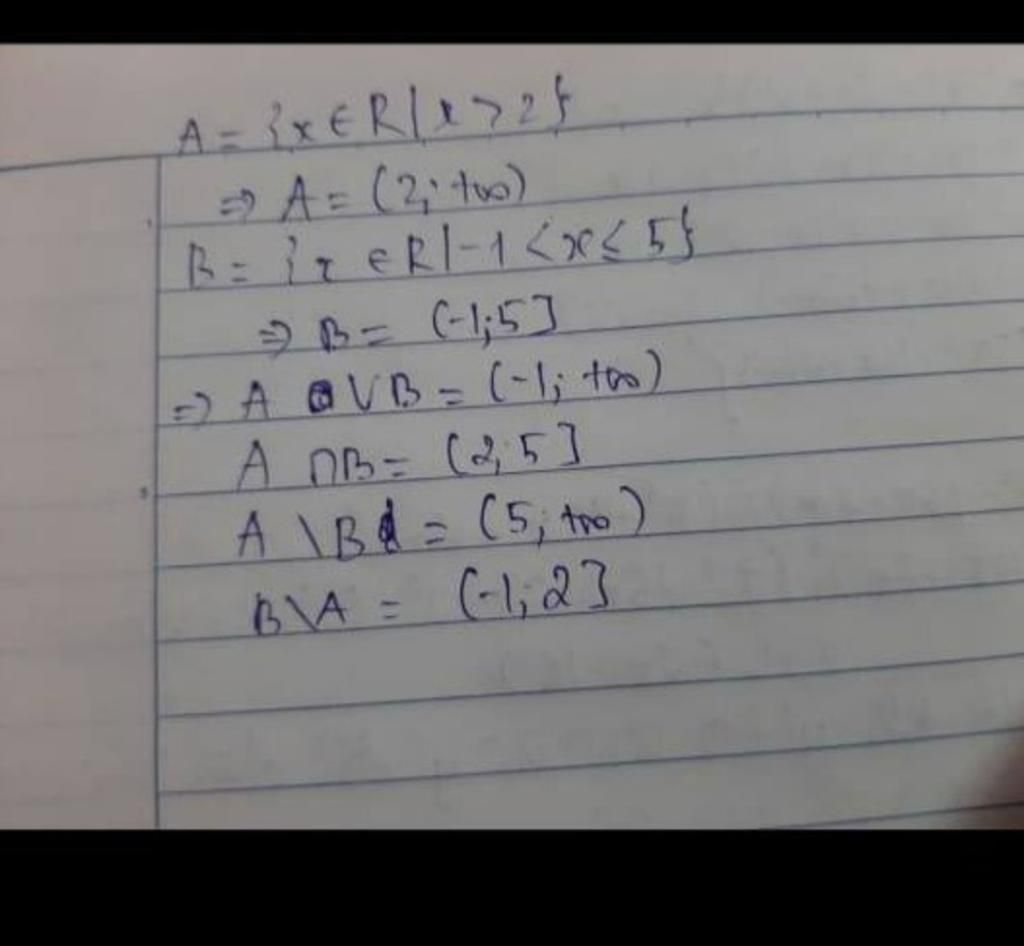 A = {x ∈ R | x > 2}
⇒ A = (2; +∞)
B = {x ∈ R | -1 < x ≤ 5}
⇒ B = (-1; 5]
⇒ A ∪ B = (-1; +∞)
A ∩ B = (2; 5]
A \ B = (5; +∞)
B \ A = (-1; 2]